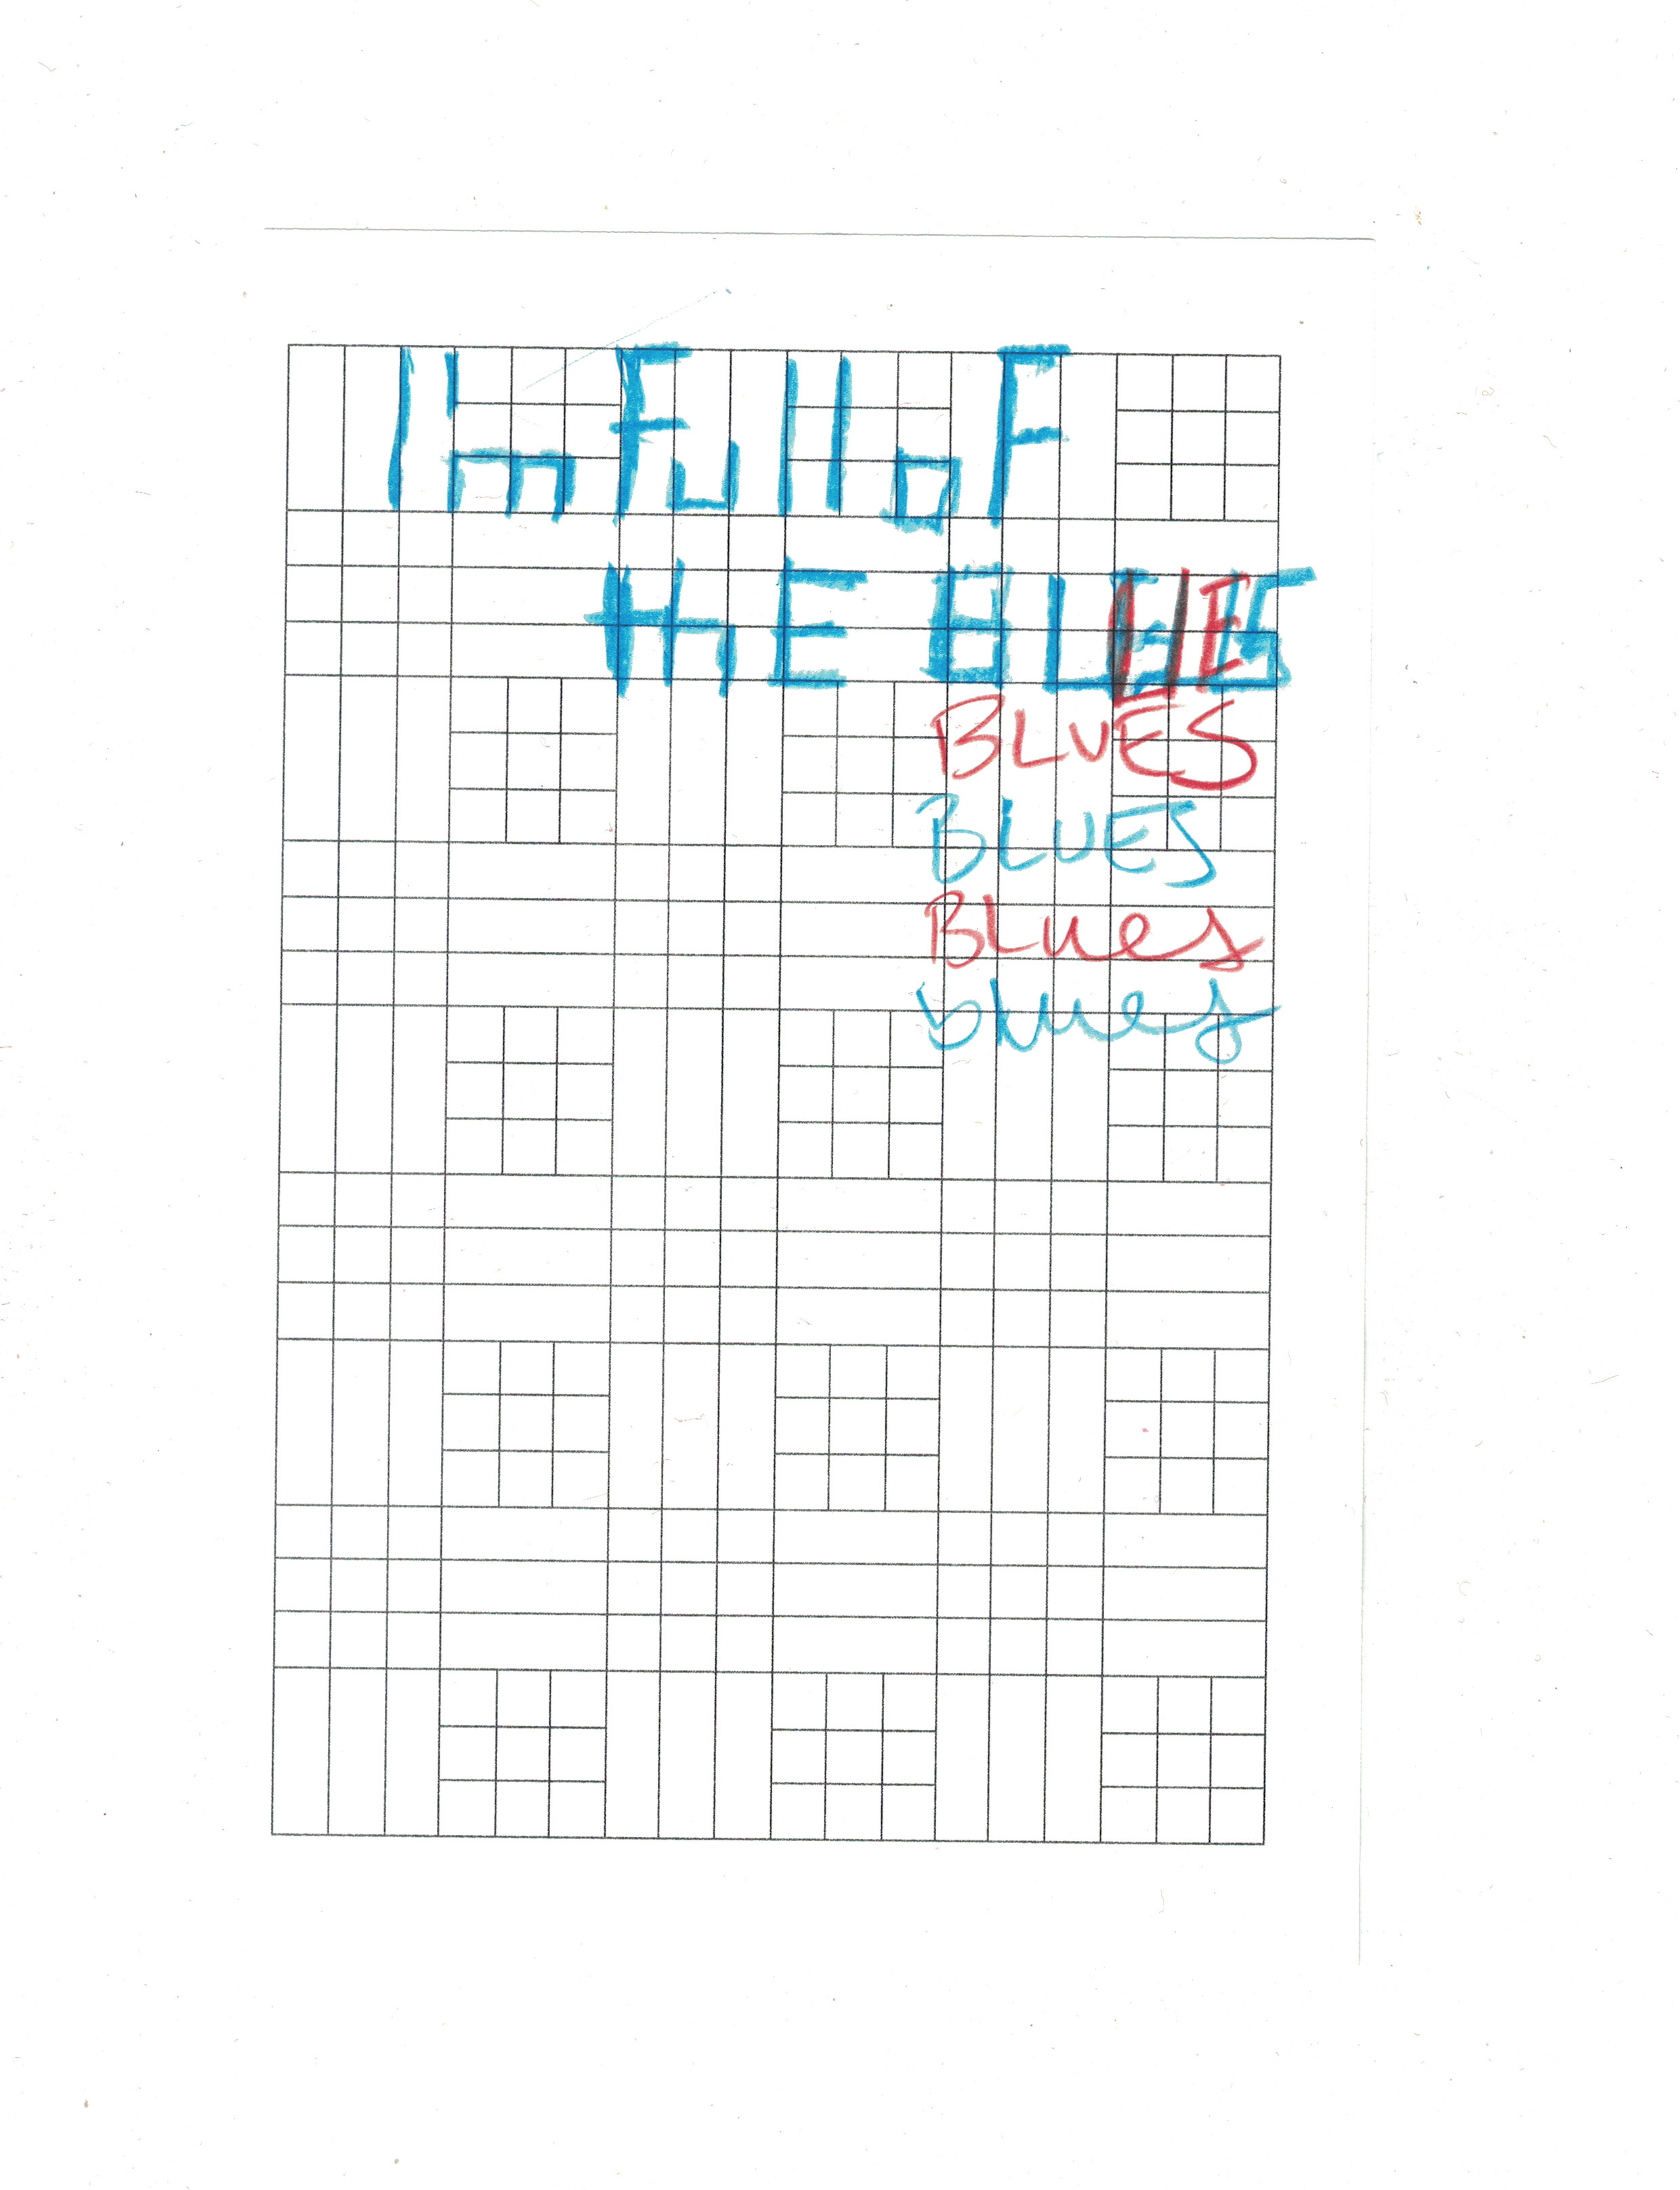 I'm Full oF
thE BLUES
BLUES
BLUES
BLues
blues